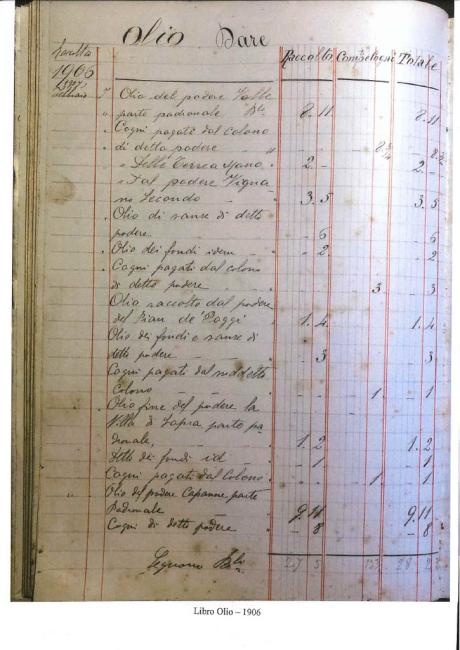 Olio Dare
Raccolta
1906
Raccolto Competenze Totale
Olio del podere Valle
parte padronale 8. 11 8. 11
Cogni pagati dal colono
di detto podere
" Delle Terre a mano 2. - 2. -
" Dal podere Vigna
no Secondo 3. 5 3. 5
Olio di sanse di detto
podere - 6 6
Olio dei fondi idem - 2 2
Cogni pagati dal colono
di detto podere 3 - 3
Olio raccolto dal podere
del Pian de' Poggi 1. 4 1. 4
Olio dei fondi e sanse di
detto podere - 3 3
Cogni pagati dal suddetto
Colono 1 1
Olio fine del podere la
Villa di Sopra parte pa
dronale, 1. 2 1. 2
Detto dei fondi id - 1 - 1
Cogni pagati dal Colono 1 1
Olio del podere Capanne, parte
Padronale 9. 11 9. 11
Cogni di detto podere - 8 - 8
Seguono
Libro Olio – 1906